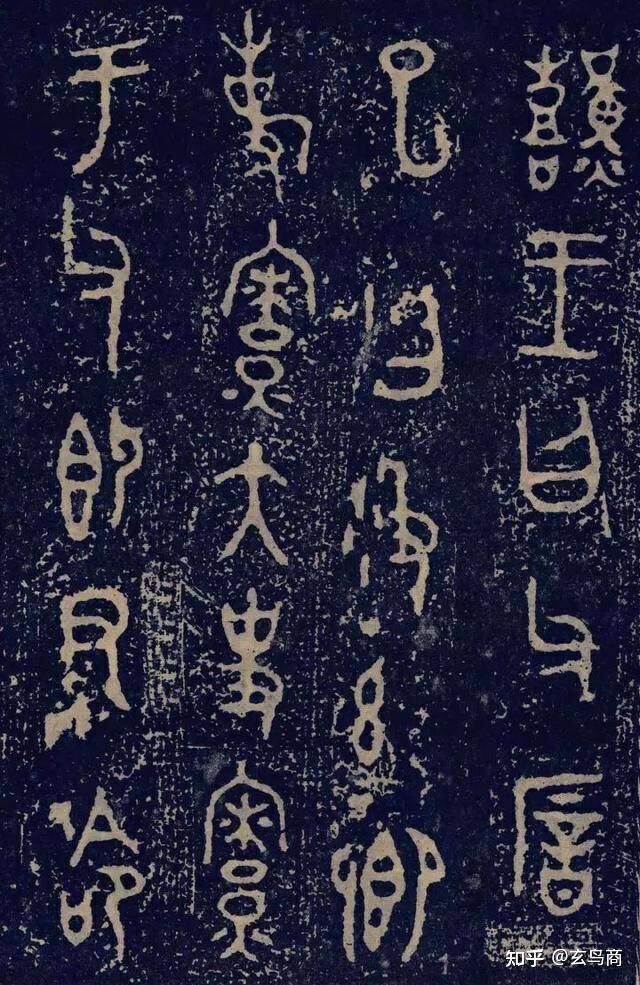 囏王曰父
已曰及茲卿
事寮大史寮
于父即尹命
知乎 @玄鸟商